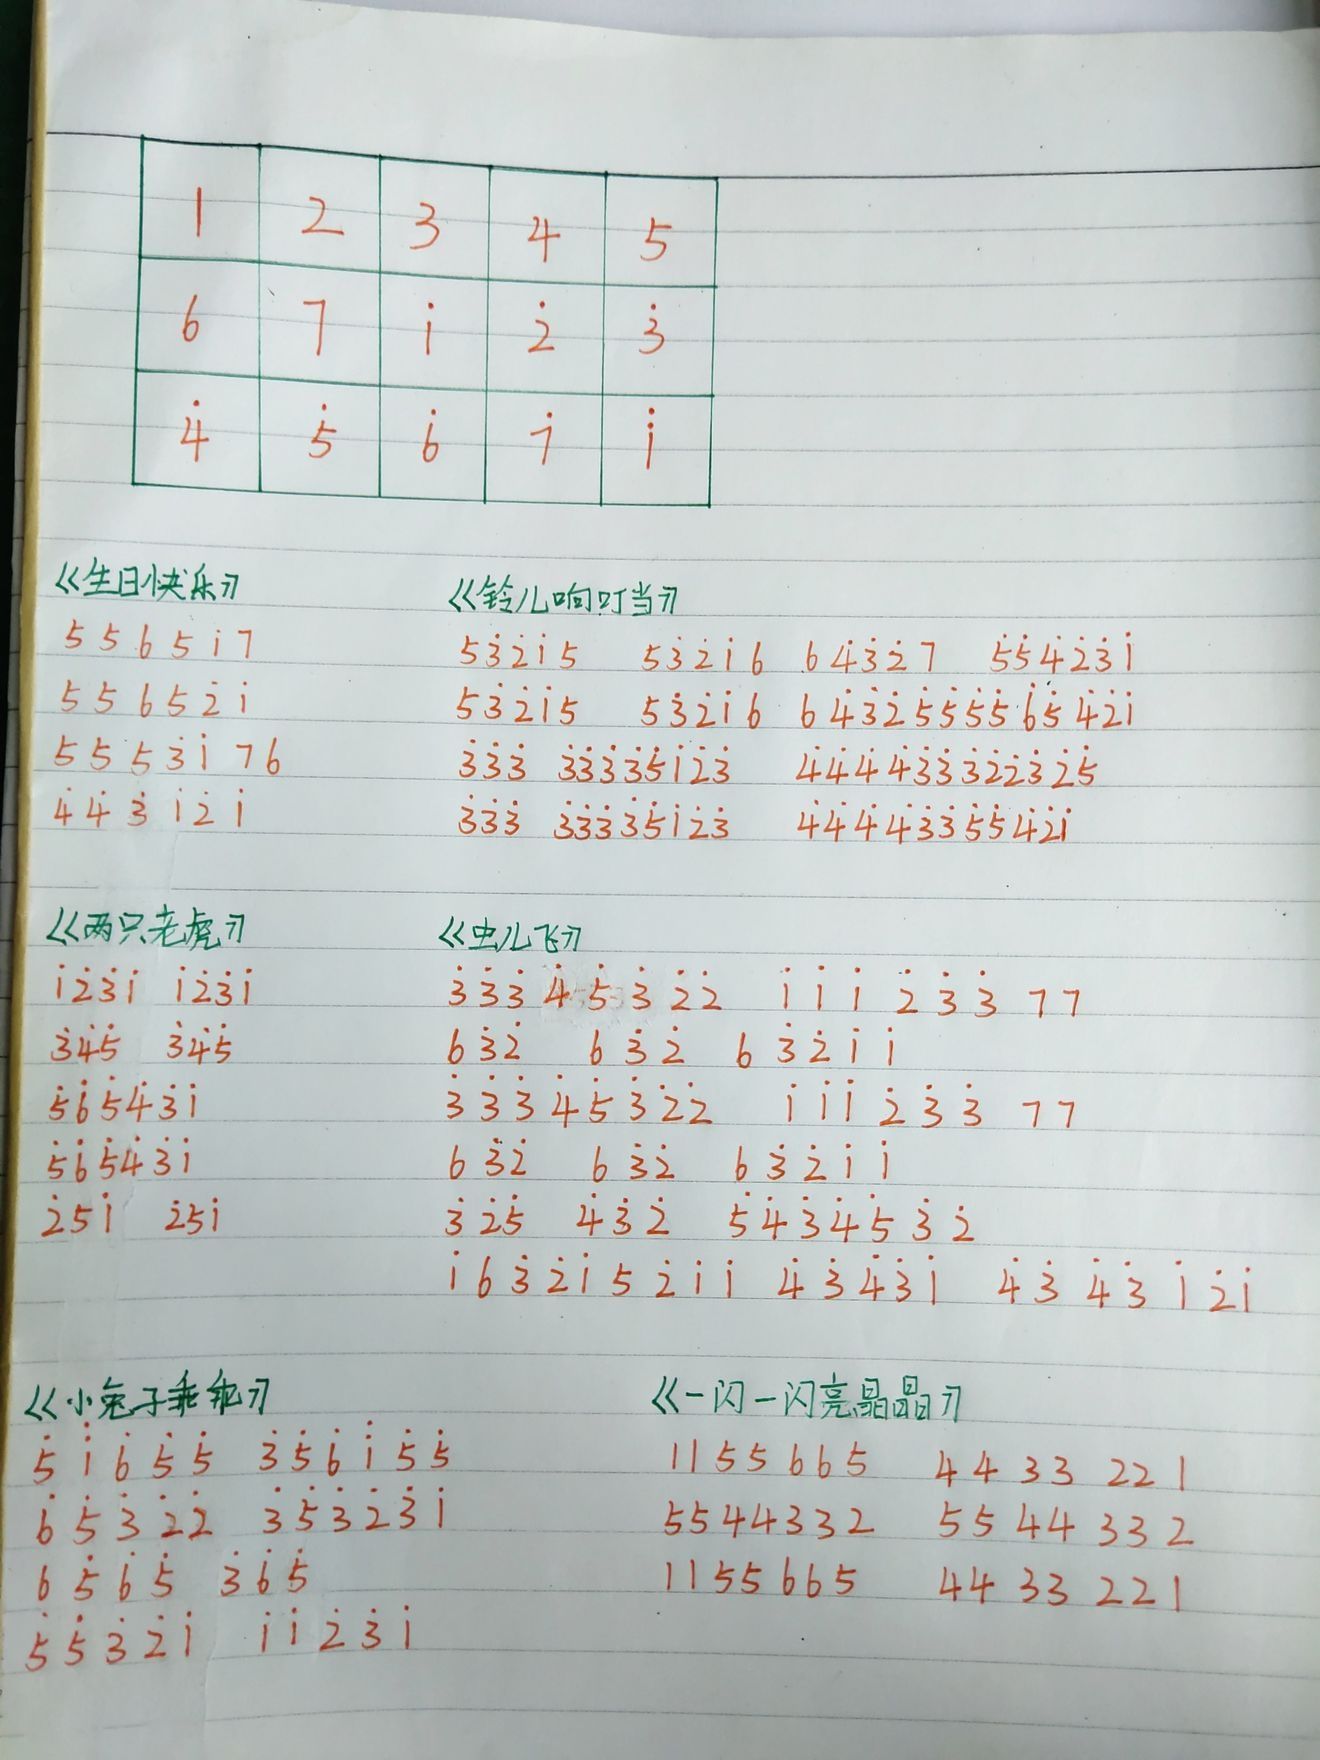 1 2 3 4 5
6 7 1̇ 2̇ 3̇
4̇ 5̇ 6̇ 7̇ 1̈
《生日快乐》
5 5 6 5 1̇ 7
5 5 6 5 2̇ 1̇
5 5 5̇ 3̇ 1̇ 7 6
4̇ 4̇ 3̇ 1̇ 2̇ 1̇
《铃儿响叮当》
53̇2̇1̇5 53̇2̇1̇6 64̇3̇2̇7 5̇5̇4̇2̇3̇1̇
53̇2̇1̇5 53̇2̇1̇6 64̇3̇2̇5̇5̇5̇5̇6̇5̇4̇2̇1̇
3̇3̇3̇ 3̇3̇3̇3̇5̇1̇2̇3̇ 4̇4̇4̇4̇3̇3̇3̇2̇2̇3̇2̇5̇
3̇3̇3̇ 3̇3̇3̇3̇5̇1̇2̇3̇ 4̇4̇4̇4̇3̇3̇5̇5̇4̇2̇1̇
《两只老虎》
1̇2̇3̇1̇ 1̇2̇3̇1̇
3̇4̇5̇ 3̇4̇5̇
5̇6̇5̇4̇3̇1̇
5̇6̇5̇4̇3̇1̇
2̇51̇ 2̇51̇
《虫儿飞》
3̇3̇3̇ 4̇ 5̇ 3̇ 2̇2̇ 1̇ 1̇ 1̇ 2̇ 3̇ 3̇ 7 7
6 3̇2̇ 6 3̇ 2̇ 6 3̇ 2̇ 1̇ 1̇
3̇ 3̇ 3̇ 4̇ 5̇ 3̇ 2̇2̇ 1̇ 1̇ 1̇ 2̇ 3̇ 3̇ 7 7
6 3̇2̇ 6 3̇2̇ 6 3̇ 2̇ 1̇ 1̇
3̇ 2̇5̇ 4̇ 3̇ 2̇ 5̇ 4̇ 3̇ 4̇ 5̇ 3̇ 2̇
1̇ 6 3̇ 2̇ 1̇ 5 2̇ 1̇ 1̇ 4̇ 3̇ 4̇ 3̇ 1̇ 4̇ 3̇ 4̇ 3̇ 1̇ 2̇ 1̇
《小兔子乖乖》
5̇ 1̈ 6̇ 5̇ 5̇ 3̇ 5̇ 6̇ 1̈ 5̇ 5̇
6̇ 5̇ 3̇ 2̇ 2̇ 3̇ 5̇ 3̇ 2̇ 3̇ 1̇
6̇ 5̇ 6̇ 5̇ 3̇ 6̇ 5̇
5̇ 5̇ 3̇ 2̇ 1̇ 1̇ 1̇ 2̇ 3̇ 1̇
《一闪一闪亮晶晶》
1155665 44 33 22 1
5544332 55 44 33 2
1155665 44 33 22 1